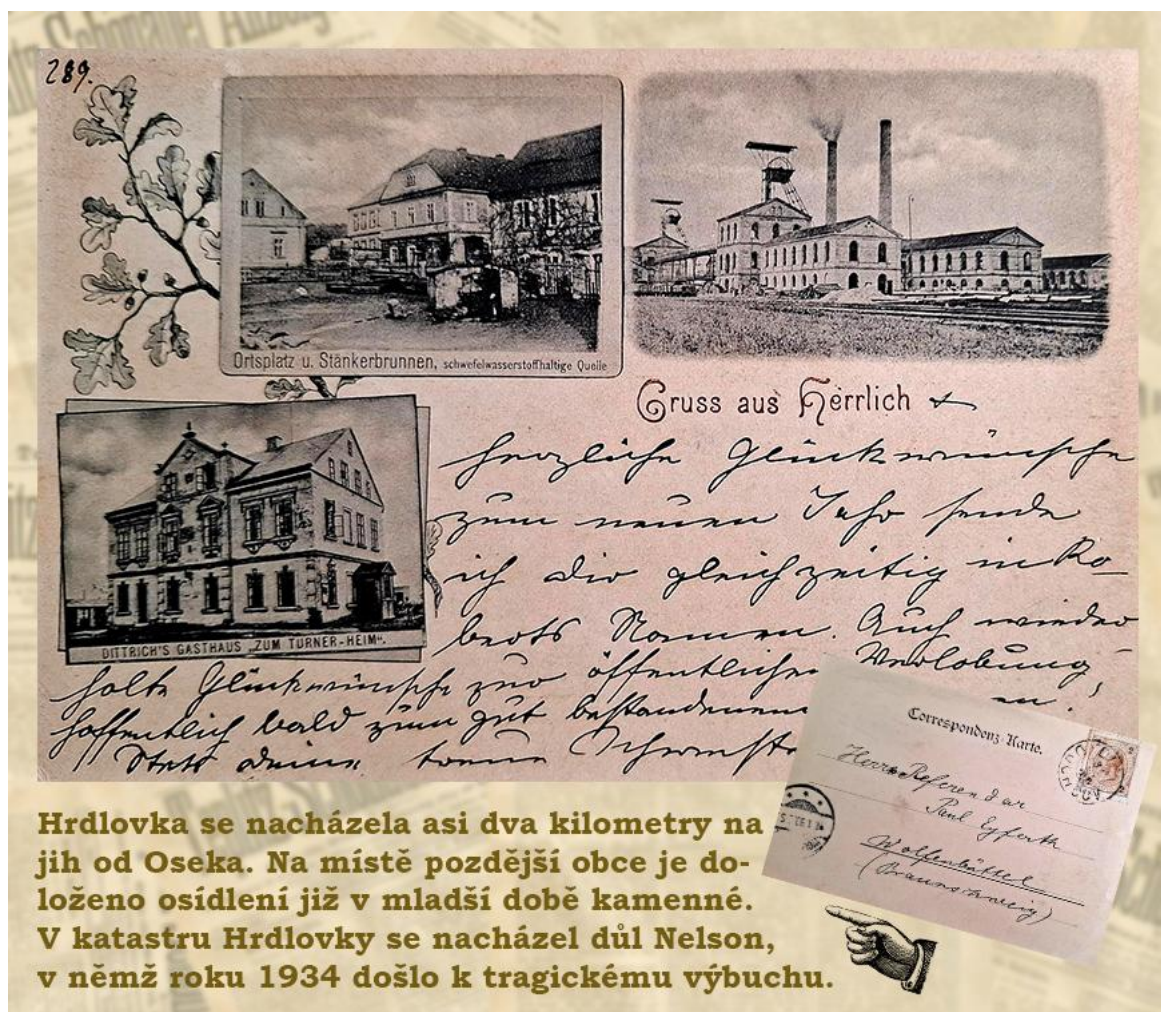 289.
Ortsplatz u. Stänkerbrunnen, schwefelwasserstoffhaltige Quelle
Gruss aus Herrlich
herzliche Glückwünsche
zum neuen Jahr sende
ich dir gleichzeitig in Ro-
berts Namen. Auch wieder
DITTRICH'S GASTHAUS „ZUM TURNER-HEIM“.
holte Glückwünsche zur öffentlichen Verlobung,
hoffentlich bald zum gut bestandenen
Stets deine treue
Correspondenz-Karte.
Herrn Referendar
Paul Eyferth
Wolfenbüttel
(Braunschweig)
Hrdlovka se nacházela asi dva kilometry na
jih od Oseka. Na místě pozdější obce je do-
loženo osídlení již v mladší době kamenné.
V katastru Hrdlovky se nacházel důl Nelson,
v němž roku 1934 došlo k tragickému výbuchu.